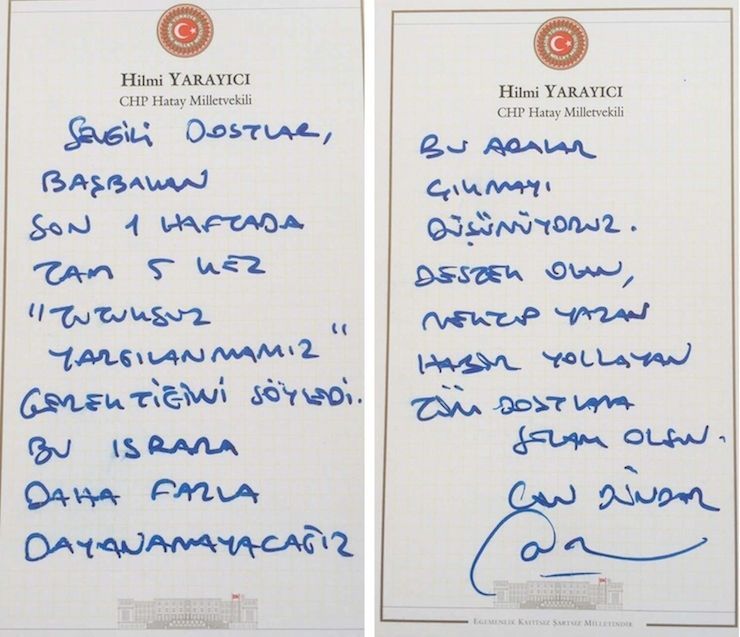 Hilmi YARAYICI
CHP Hatay Milletvekili
SEVGİLİ DOSTLAR,
BAŞBAKAN
SON 1 HAFTADA
TAM 5 KEZ
"TUTUKSUZ
YARGILANMAMIZ"
GEREKTİĞİNİ SÖYLEDİ.
BU ISRARA
DAHA FAZLA
DAYANAMAYACAĞIZ
Hilmi YARAYICI
CHP Hatay Milletvekili
BU ARALAR
ÇIKMAYI
DÜŞÜNÜYORUZ.
DESTEK OLAN,
MEKTUP YAZAN
HABER YOLLAYAN
TÜM DOSTLARA
SELAM OLSUN.
CAN DÜNDAR
EGEMENLİK KAYITSIZ ŞARTSIZ MİLLETİNDİR